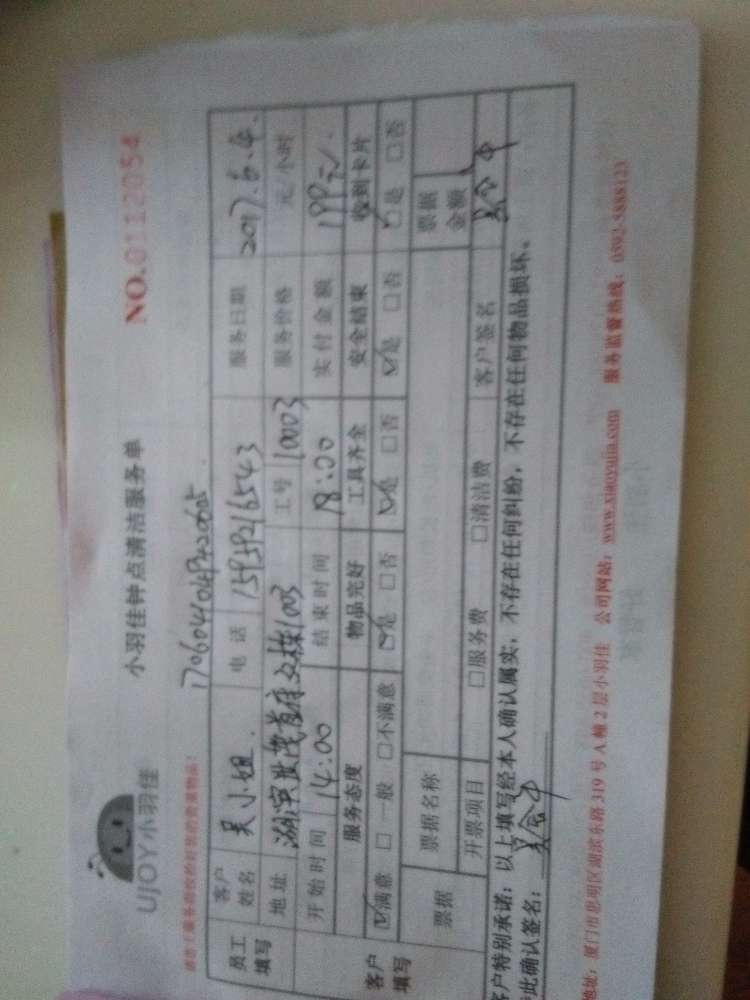 UJOY小羽佳
小羽佳钟点清洁服务单
NO.0112054
员工填写
客户姓名 吴小姐 电话 15959216543 服务日期 2017.6.4.
地址 工号 10003 服务价格 元/小时
开始时间 14:00 结束时间 18:00 实付金额 199元
客户填写
服务态度 物品完好 工具齐全 安全结束 收到卡片
☑满意 □一般 □不满意 ☑是 □否 ☑是 □否 ☑是 □否 ☑是 □否
票据 票据名称 票据金额
开票项目 □服务费 □清洁费 客户签名
客户特别承诺：以上填写经本人确认属实，不存在任何纠纷，不存在任何物品损坏。
此确认签名：
地址：厦门市思明区湖滨东路319号A幢2层小羽佳 公司网站：www.xiaoyujia.com 服务监督热线：0592-5888123